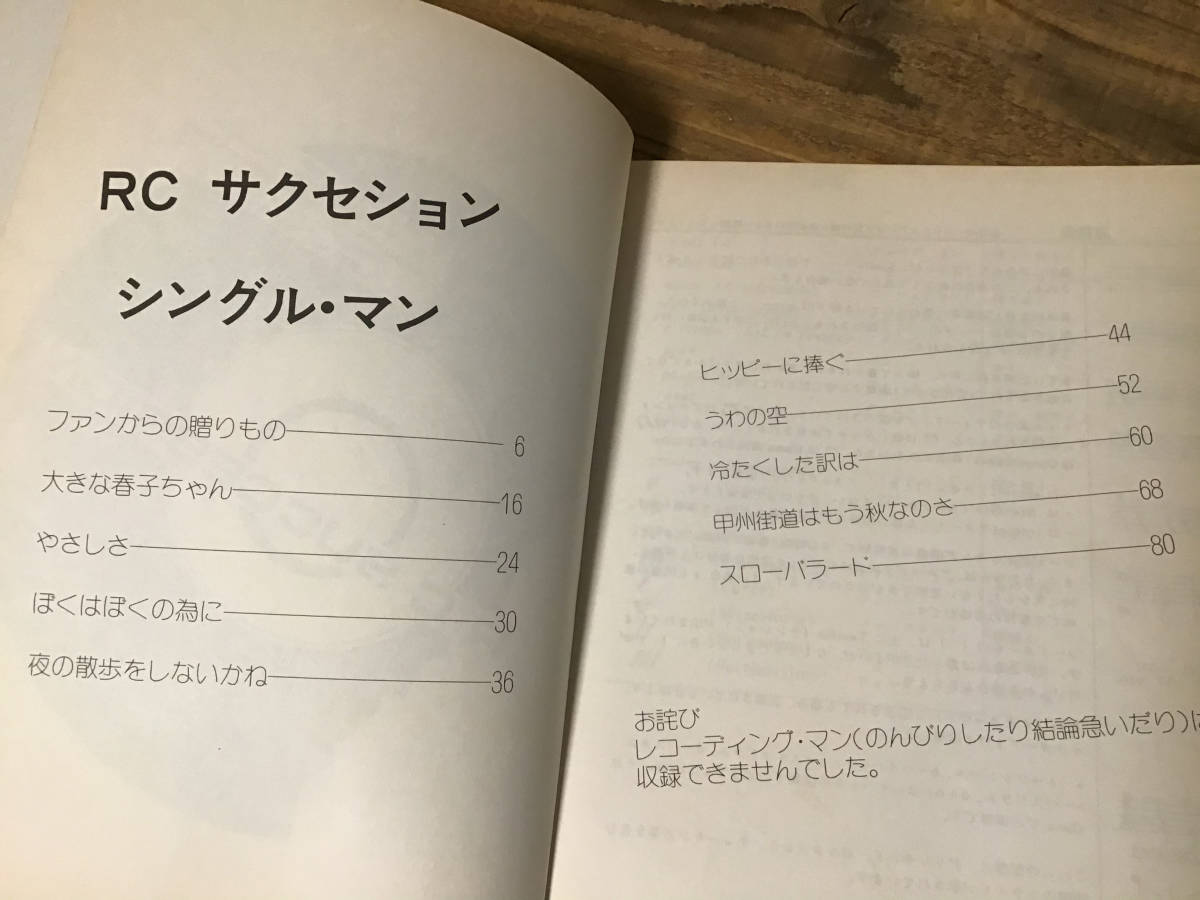 RC サクセション
シングル・マン
ファンからの贈りもの 6
大きな春子ちゃん 16
やさしさ 24
ぼくはぼくの為に 30
夜の散歩をしないかね 36
ヒッピーに捧ぐ 44
うわの空 52
冷たくした訳は 60
甲州街道はもう秋なのさ 68
スローバラード 80
お詫び
レコーディング・マン(のんびりしたり結論急いだり)は
収録できませんでした。